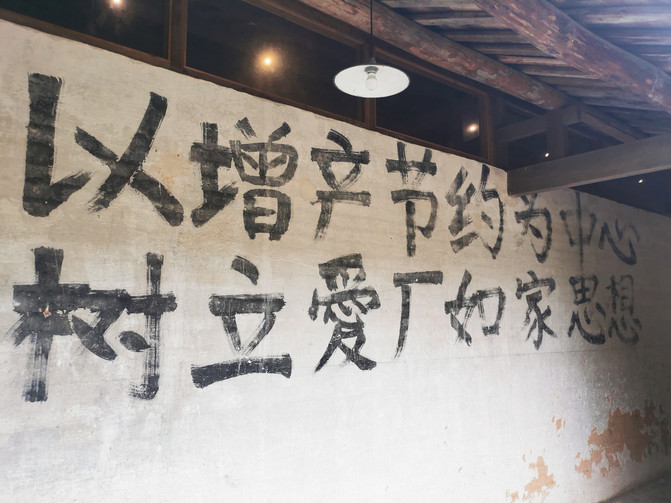 以增产节约为中心
树立愛厂如家思想